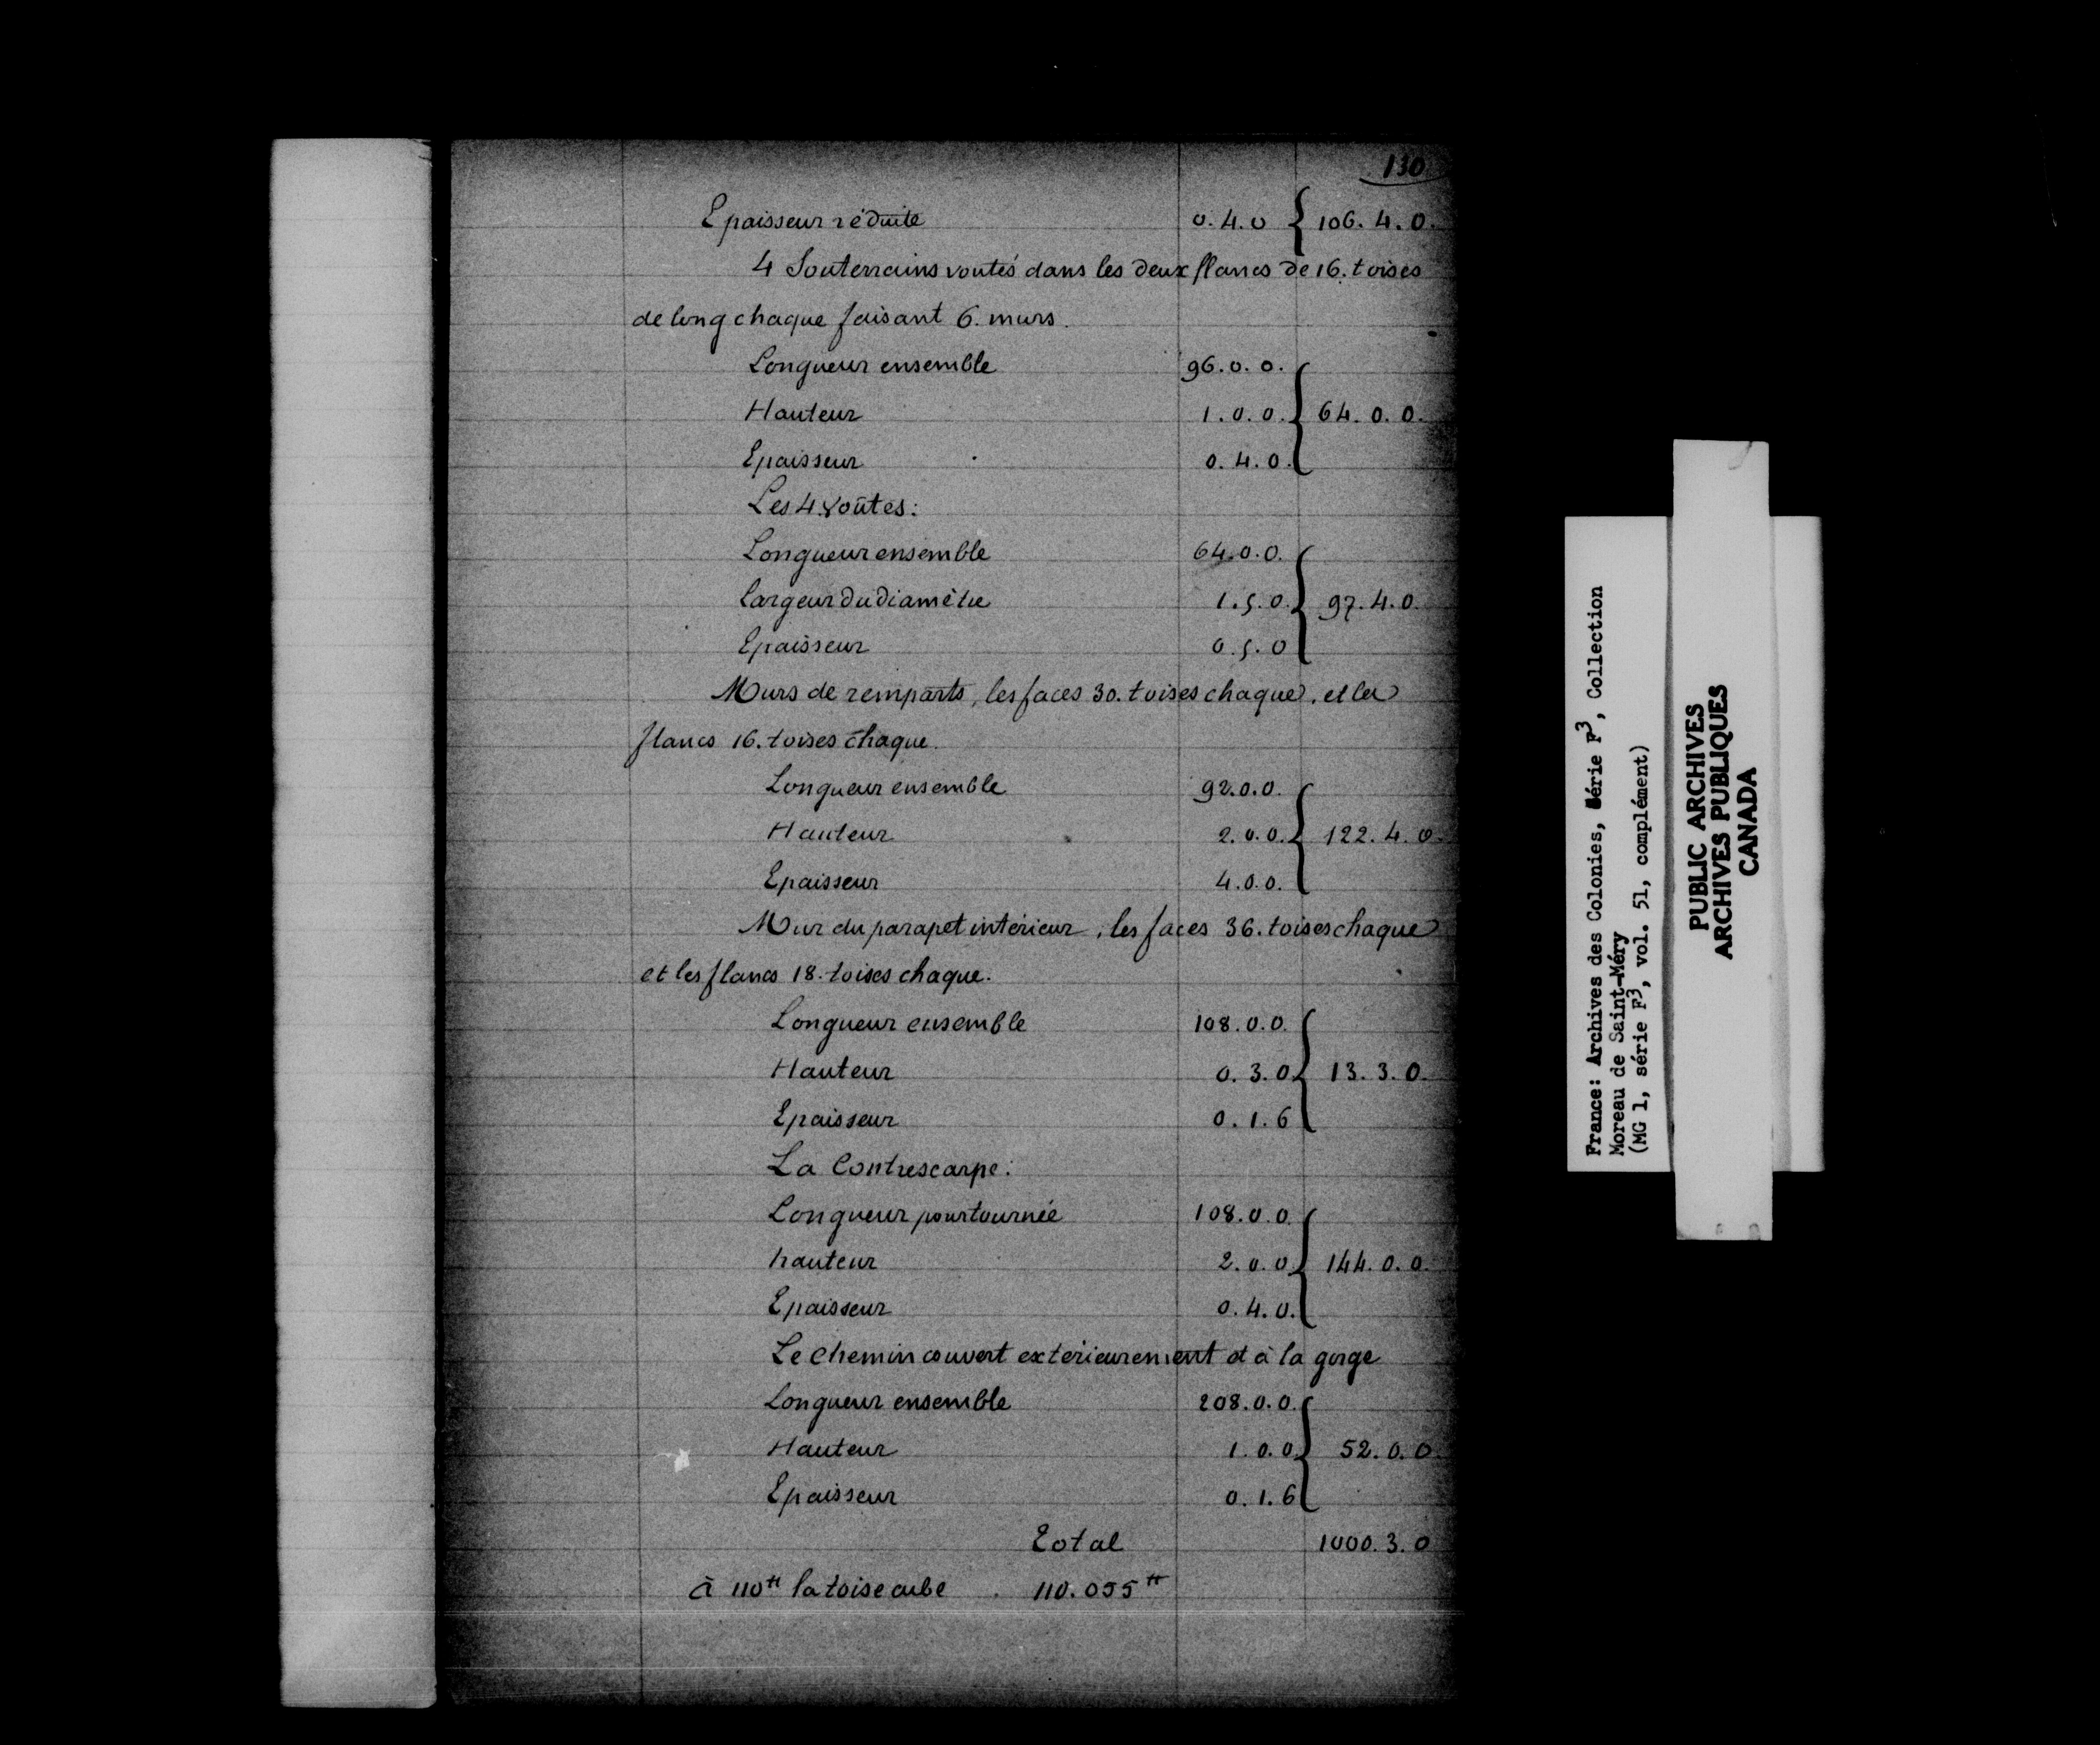 130
Epaisseur réduite 0.4.0 { 106.4.0.
4 Souterrains voutés dans les deux flancs de 16. toises
de long chaque faisant 6. murs.
Longueur ensemble 96.0.0.
Hauteur 1.0.0. { 64.0.0.
Epaisseur 0.4.0.
Les 4 voûtes:
Longueur ensemble 64.0.0.
largeur du diamètre 1.5.0. { 97.4.0.
Epaisseur 0.5.0
Murs de remparts, les faces 30. toises chaque, et les
flancs 16. toises chaque.
Longueur ensemble 92.0.0.
Hauteur 2.0.0. { 122.4.0.
Epaisseur 4.0.0.
Mur du parapet intérieur, les faces 36. toises chaque
et les flancs 18. toises chaque.
Longueur ensemble 108.0.0.
Hauteur 0.3.0 { 13.3.0.
Epaisseur 0.1.6
La Contrescarpe:
Longueur pourtournée 108.0.0.
hauteur 2.0.0 { 144.0.0.
Epaisseur 0.4.0.
Le Chemin couvert extérieurement et à la gorge
Longueur ensemble 208.0.0.
Hauteur 1.0.0 { 52.0.0.
Epaisseur 0.1.6
Total 1000.3.0
à 110tt la toise cube 110.055tt
France: Archives des Colonies, Série F3, Collection
Moreau de Saint-Méry
(MG 1, série F3, vol. 51, complément)
PUBLIC ARCHIVES
ARCHIVES PUBLIQUES
CANADA